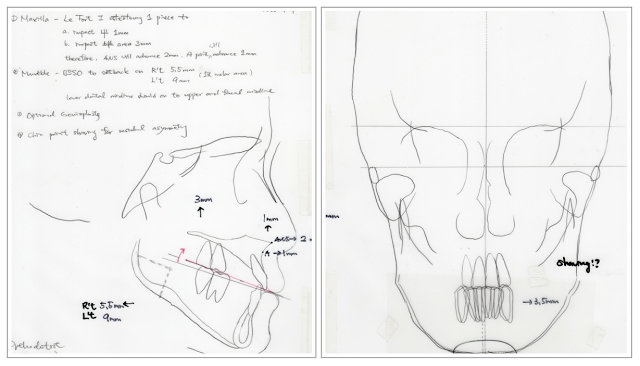 ① Maxilla - Le Fort I osteotomy 1 piece to
a. impact 1mm
b. impact area 3mm
therefore, ANS will advance 2mm. A point, advance 1mm
② Mandible - BSSO to setback on R't 5.5mm (1st molar area)
L't 9mm
lower dental midline should be to upper and facial midline
③ Optional Genioplasty
④ Chin point shaving for residual asymmetry
3mm
1mm
ANS→ 2
A →1mm
R't 5.5mm
L't 9mm
mm
shaving!?
→3.5mm